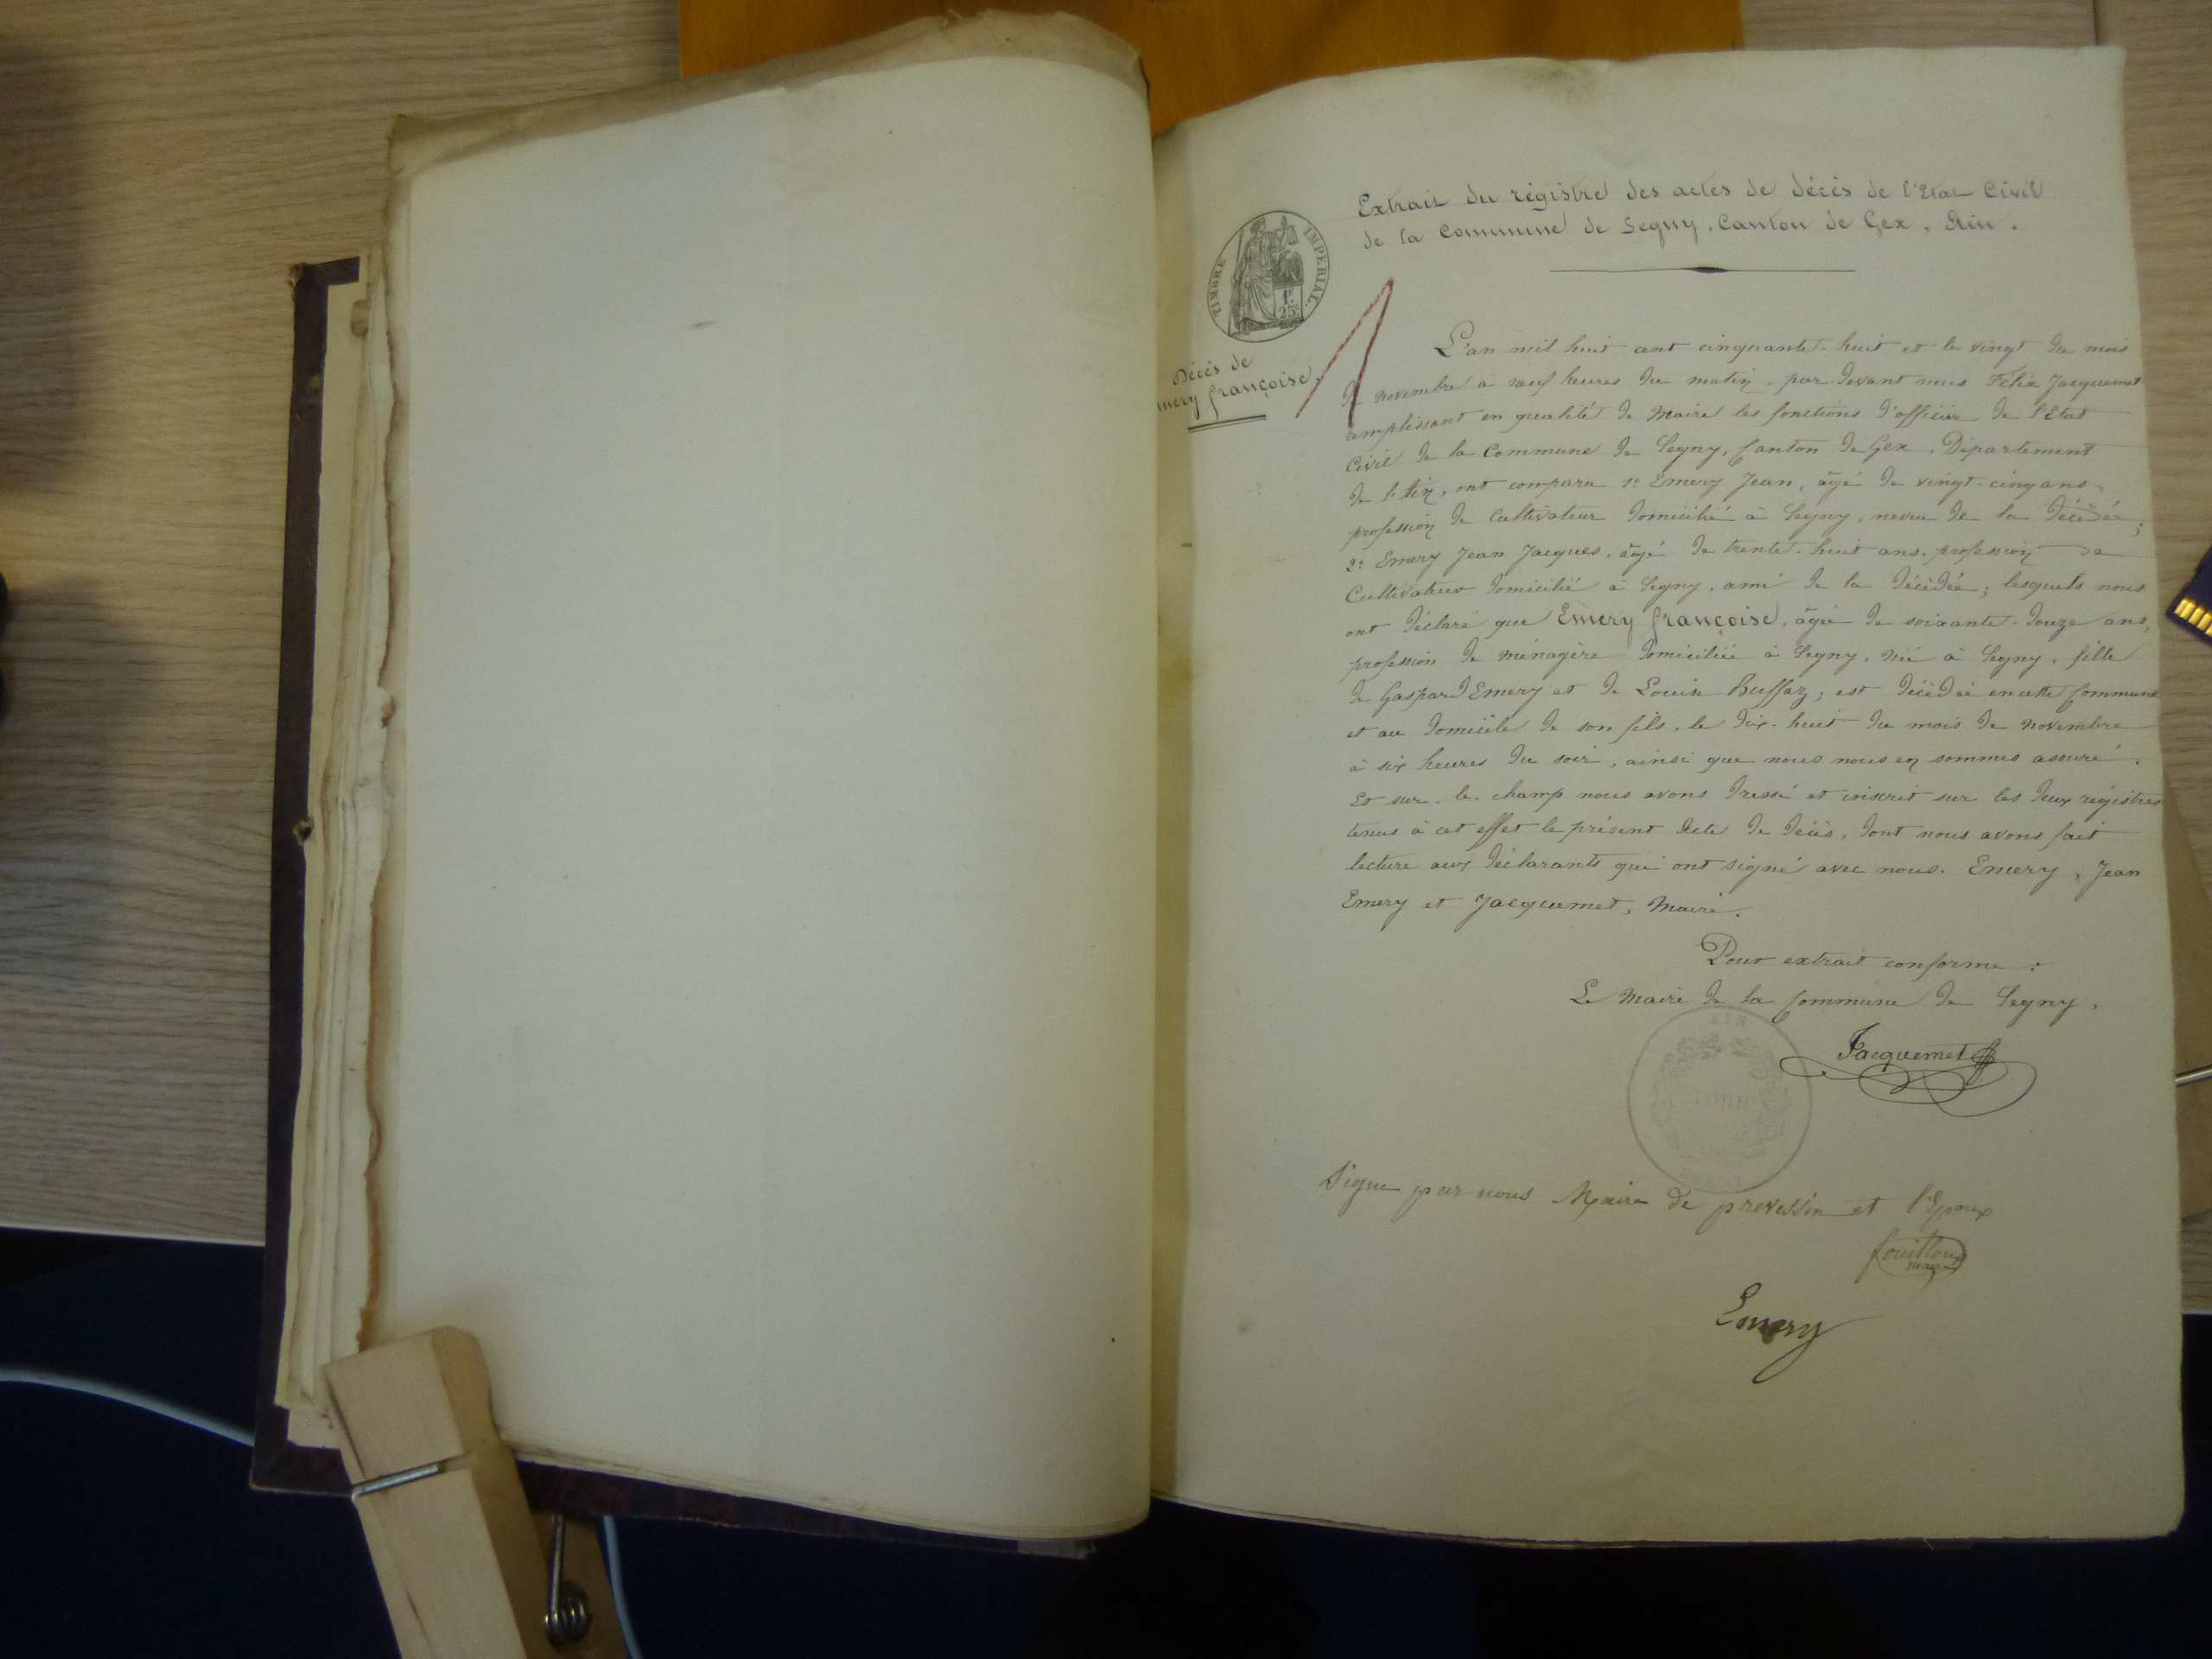 Extrait du régistre des actes de décès de l'Etat Civil
de la Commune de Segny, Canton de Gex, Ain.
TIMBRE IMPERIAL
1F
25c
Décès de
mery françoise
L'an mil huit cent cinquante-huit et le vingt du mois
de novembre à neuf heures du matin, par devant nous Félix Jacquemet
remplissant en qualité de Maire les fonctions d'officier de l'Etat
Civil de la Commune de Segny, Canton de Gex, Département
de l'Ain, ont comparu 1º Emery Jean, âgé de vingt-cinq ans,
profession de Cultivateur domicilié à Segny, neveu de la décédée;
2º Emery Jean Jacques, âgé de trente-huit ans, profession de
Cultivateur domicilié à Segny, ami de la décédée; lesquels nous
ont déclaré que Emery françoise, âgée de soixante-douze ans,
profession de ménagère domiciliée à Segny, née à Segny, fille
de Gaspard Emery et de Louise Buffaz; est décédée en cette Commune
et au domicile de son fils, le dix-huit du mois de novembre
à six heures du soir, ainsi que nous nous en sommes assuré.
Et sur-le-champ nous avons dressé et inscrit sur les deux régistres
tenus à cet effet le présent Acte de décès, dont nous avons fait
lecture aux déclarants qui ont signé avec nous. Emery, Jean
Emery et Jacquemet, Maire.
Pour extrait conforme:
Le Maire de la Commune de Segny,
Jacquemet
Signe par nous Maire de prevessin et l'Epoux
fouilloux
maire
Emery